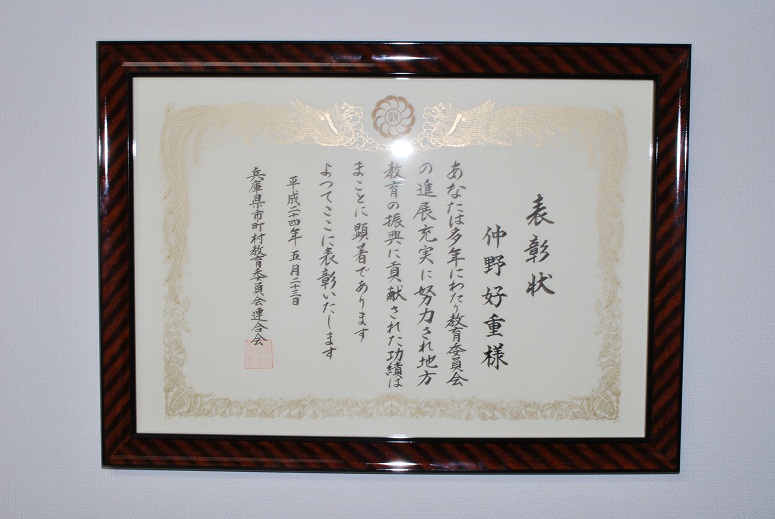 表彰状
仲野好重様
あなたは多年にわたり教育委員会
の進展充実に努力され地方
教育の振興に貢献された功績は
まことに顕著であります
よつてここに表彰いたします
平成二十四年五月二十三日
兵庫県市町村教育委員会連合会